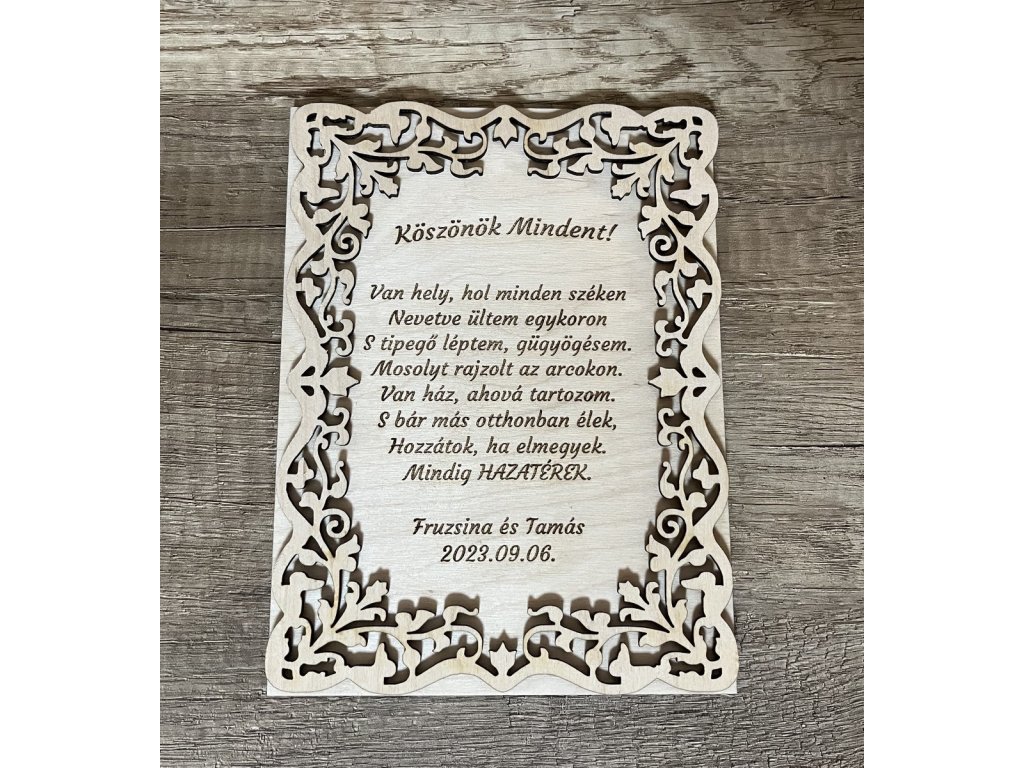 Köszönök Mindent!
Van hely, hol minden széken
Nevetve ültem egykoron
S tipegő léptem, gügyögésem.
Mosolyt rajzolt az arcokon.
Van ház, ahová tartozom.
S bár más otthonban élek,
Hozzátok, ha elmegyek.
Mindig HAZATÉREK.
Fruzsina és Tamás
2023.09.06.